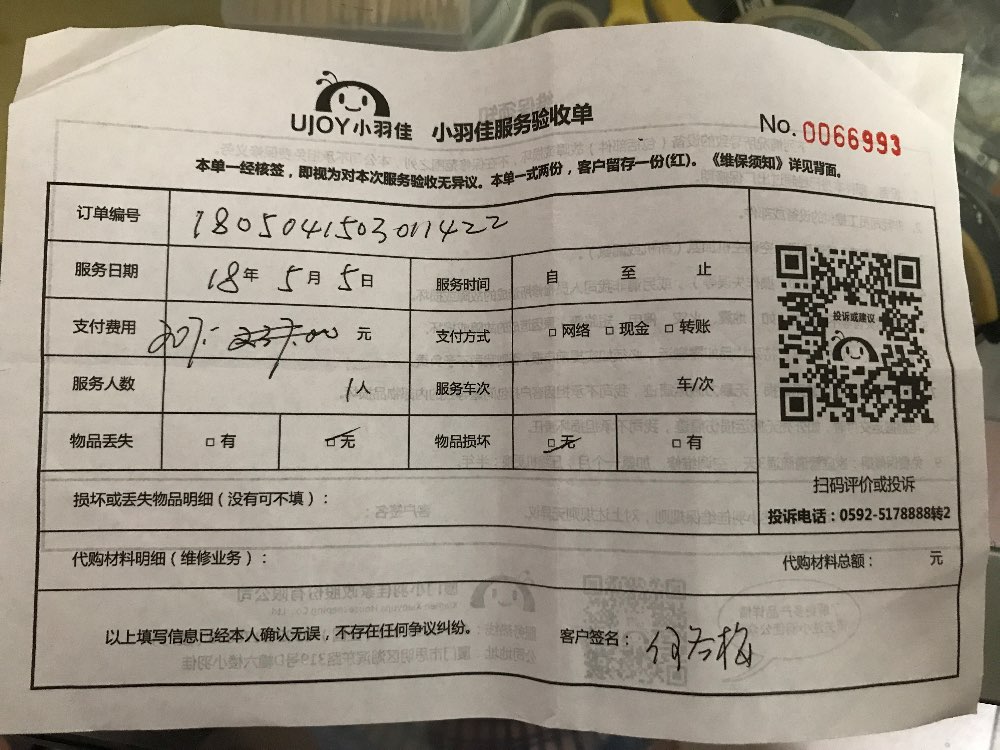 UJOY小羽佳 小羽佳服务验收单
No. 0066993
本单一经核签，即视为对本次服务验收无异议。本单一式两份，客户留存一份(红)。《维保须知》详见背面。
订单编号 180504150301422
服务日期 18年 5月 5日 服务时间 自 至 止
支付费用 元 支付方式 □网络 □现金 □转账
服务人数 1人 服务车次 车/次
物品丢失 □有 □无 物品损坏 □无 □有
投诉或建议
扫码评价或投诉
投诉电话：0592-5178888转2
损坏或丢失物品明细（没有可不填）：
代购材料明细（维修业务）： 代购材料总额： 元
以上填写信息已经本人确认无误，不存在任何争议纠纷。 客户签名：